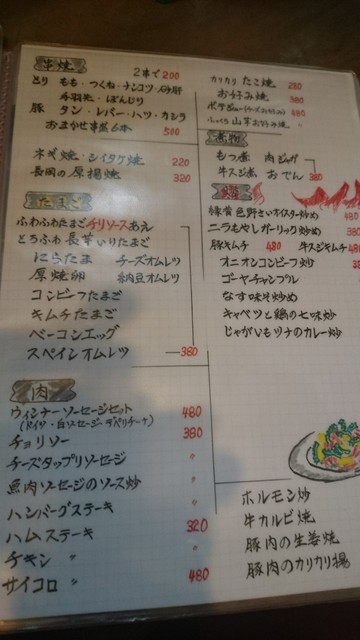 串焼 2本で200
とり もも・つくね・ナンコツ・砂肝
手羽先・ぼんじり
豚 タン・レバー・ハツ・カシラ
おまかせ串盛6本 500
ネギ焼・シイタケ焼 220
長岡の厚揚焼 320
たまご
ふわふわたまごチリソースあえ
とろふわ長芋いりたまご
にらたま チーズオムレツ
厚焼卵 納豆オムレツ
コンビーフたまご
キムチたまご
ベーコンエッグ
スペインオムレツ 380
肉
ウィンナーソーセージセット 480
チョリソー 380
チーズタップリソーセージ 〃
魚肉ソーセージのソース炒 〃
ハンバーグステーキ 〃
ハムステーキ 320
チキン 〃 〃
サイコロ 〃 480
カリカリたこ焼 280
お好み焼 380
ふっくら山芋お好み焼 〃
煮物
もつ煮 肉じゃが
牛スジ煮 おでん 380
ニラもやしガーリック炒め 380
豚キムチ 480 牛スジキムチ 480
オニオンコンビーフ炒
ゴーヤチャンプル
なす味噌炒め
キャベツと鶏の七味炒
じゃがいもツナのカレー炒
ホルモン炒
牛カルビ焼
豚肉の生姜焼
豚肉のカリカリ揚